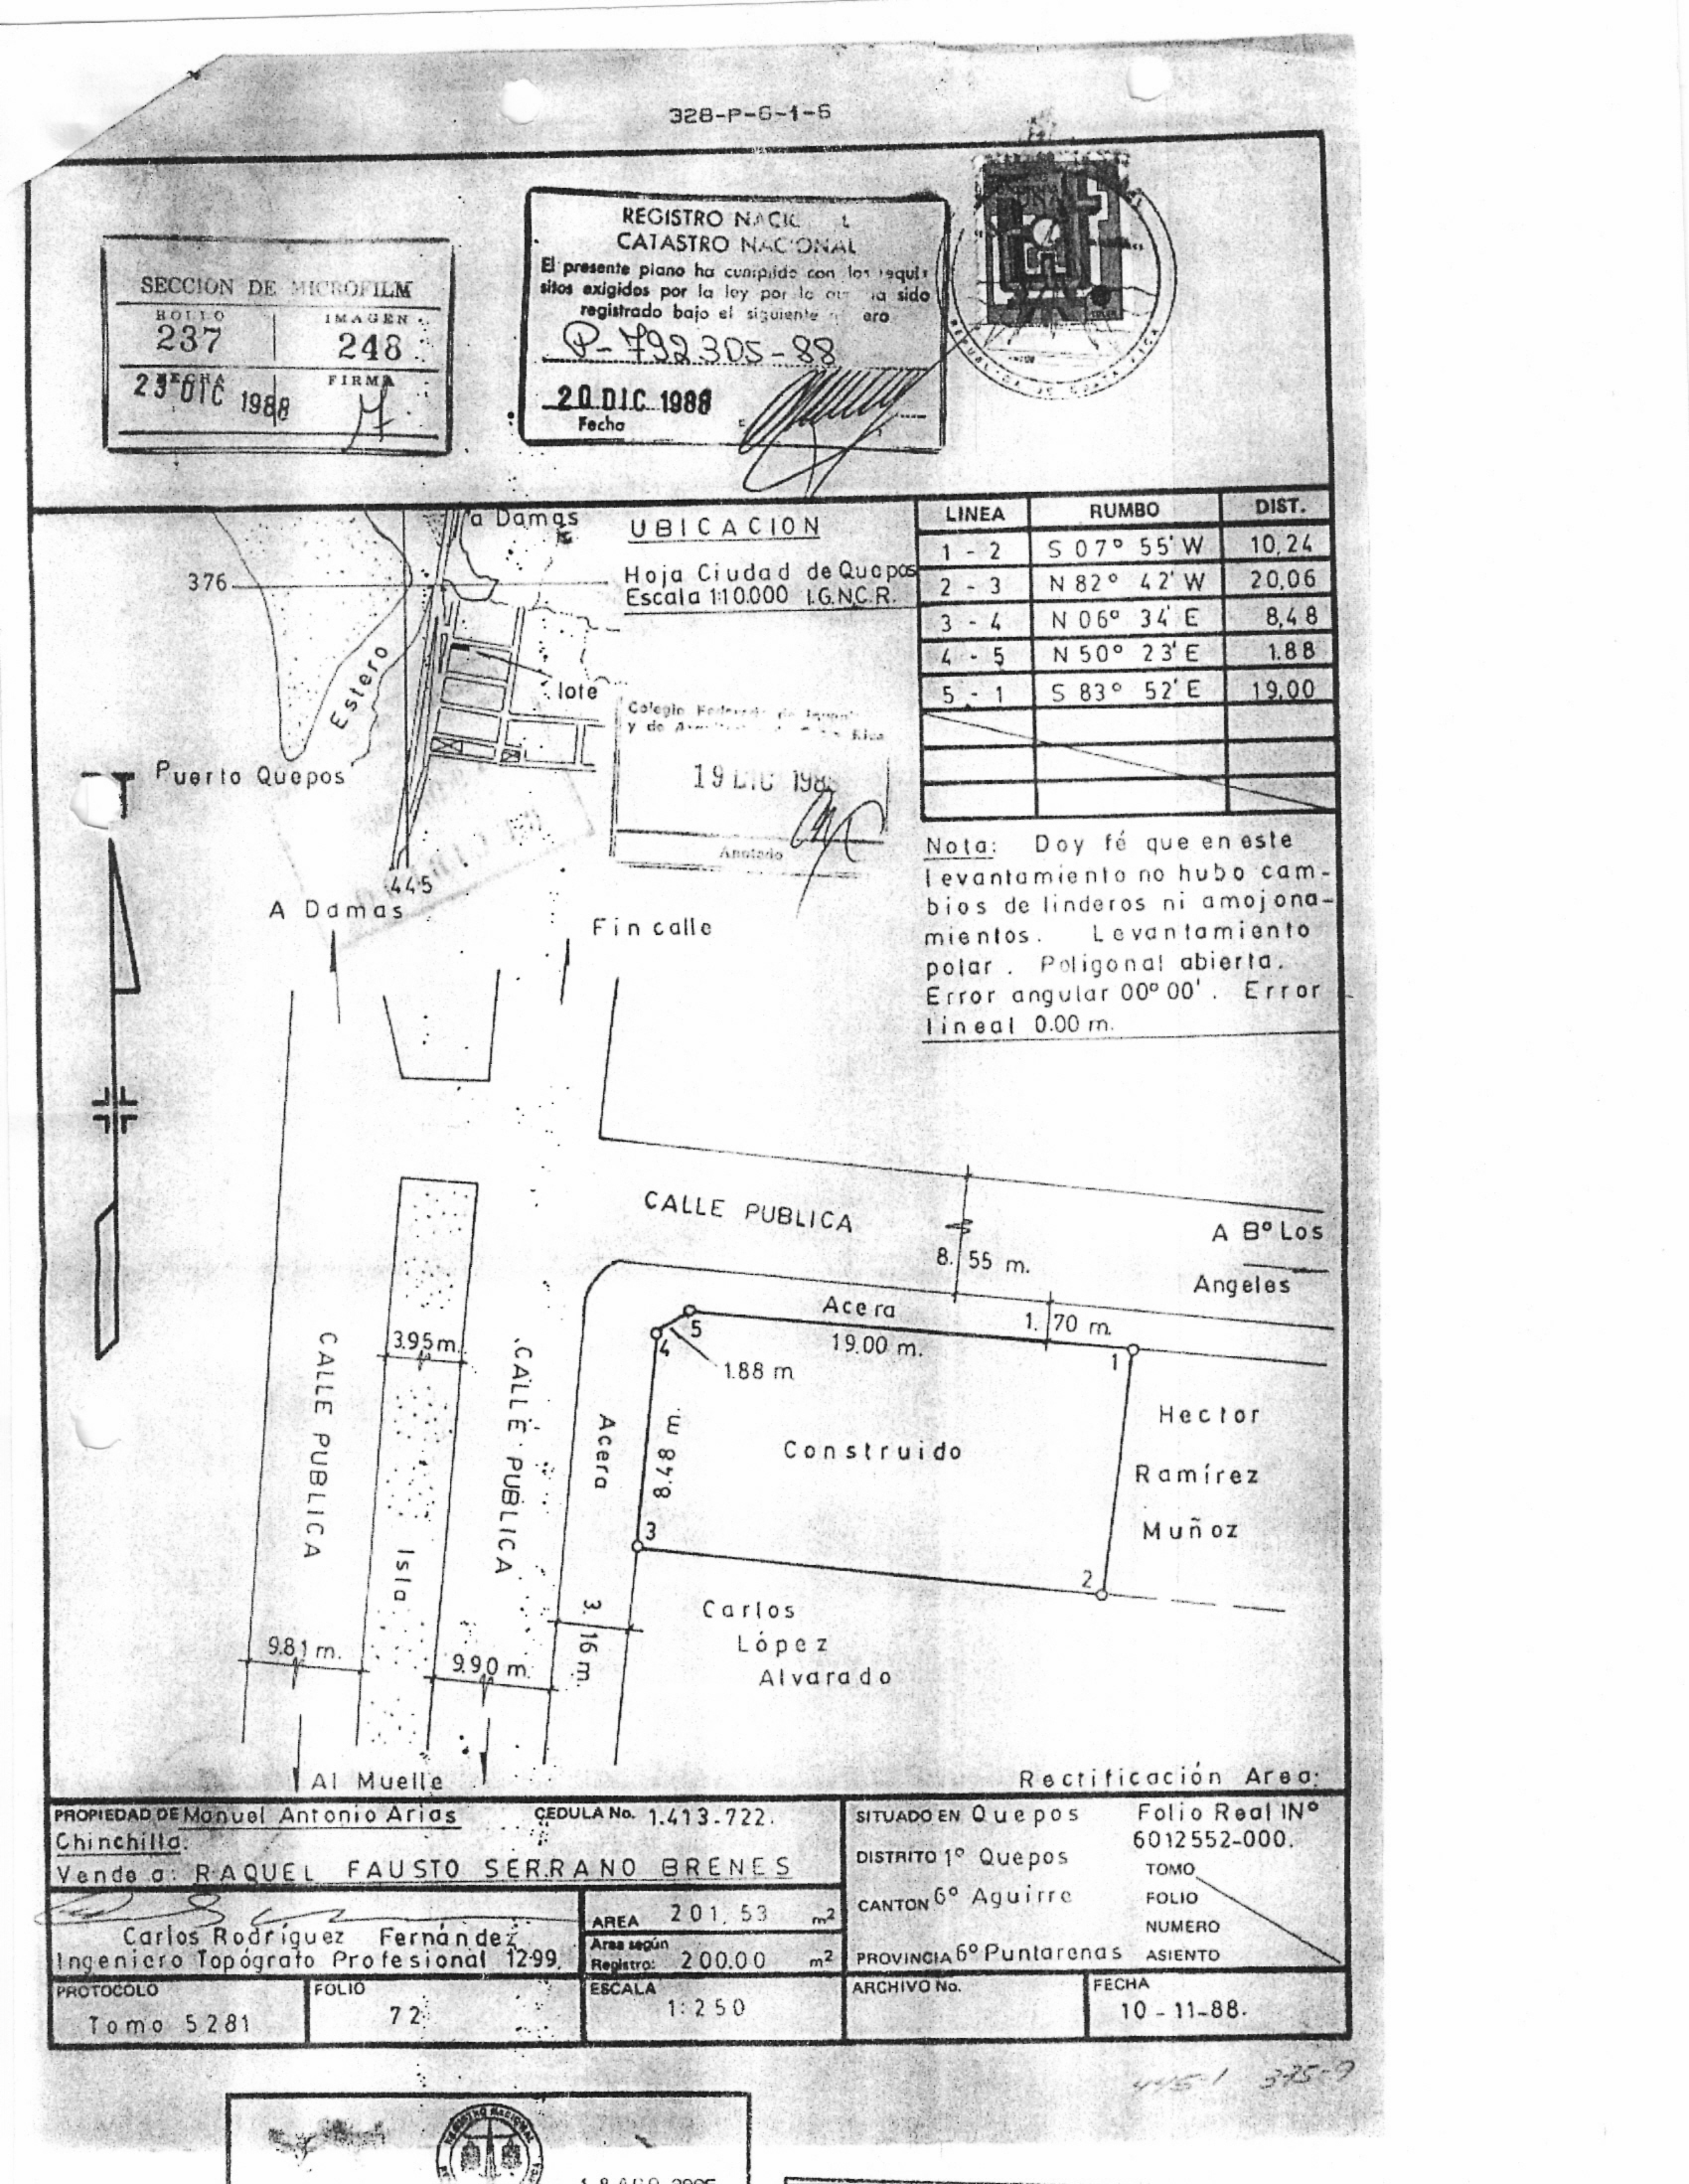 328-P-6-1-6
SECCION DE MICROFILM
ROLLO IMAGEN
237 248
FECHA FIRMA
23 DIC 1988
REGISTRO NACIONAL
CATASTRO NACIONAL
El presente plano ha cumplido con los requi
sitos exigidos por la ley por lo ha sido
registrado bajo el siguiente
P-792305-88
20 DIC 1988
Fecha
REPUBLICA DE COSTA RICA
a Damas
UBICACION
Hoja Ciudad de Quepos
Escala 1:10.000 I.G.N.C.R.
376
Estero
lote
Puerto Quepos
445
Colegio Federado de
y de
Rica
19 DIC 198
Anotado
LINEA RUMBO DIST.
1 - 2 S 07° 55' W 10,24
2 - 3 N 82° 42' W 20,06
3 - 4 N 06° 34' E 8,48
4 - 5 N 50° 23' E 1.88
5 - 1 S 83° 52' E 19,00
Nota: Doy fé que en este
levantamiento no hubo cam-
bios de linderos ni amojona-
mientos. Levantamiento
polar. Poligonal abierta.
Error angular 00° 00'. Error
lineal 0.00 m.
A Damas
Fin calle
CALLE PUBLICA
8.55 m.
A B° Los
Angeles
Acera
1.70 m.
19.00 m.
5
4
1
1.88 m
3.95 m.
CALLE PUBLICA
CALLE PUBLICA
Isla
Acera
8.48 m.
Construido
Hector
Ramírez
Muñoz
3
2
3.16 m.
Carlos
López
Alvarado
9.81 m.
9.90 m.
Al Muelle
Rectificación Area:
PROPIEDAD DE Manuel Antonio Arias CEDULA No. 1.413-722.
Chinchilla.
Vende a: RAQUEL FAUSTO SERRANO BRENES
SITUADO EN Quepos Folio Real N°
6012552-000.
DISTRITO 1° Quepos
TOMO
CANTON 6° Aguirre
FOLIO
NUMERO
PROVINCIA 6° Puntarenas ASIENTO
Carlos Rodríguez Fernández
Ingeniero Topógrafo Profesional 1299.
AREA 201.53 m²
Area según
Registro: 200.00 m²
PROTOCOLO
Tomo 5281
FOLIO
72
ESCALA
1:250
ARCHIVO No.
FECHA
10-11-88.
445-1 375-9
REGISTRO NACIONAL